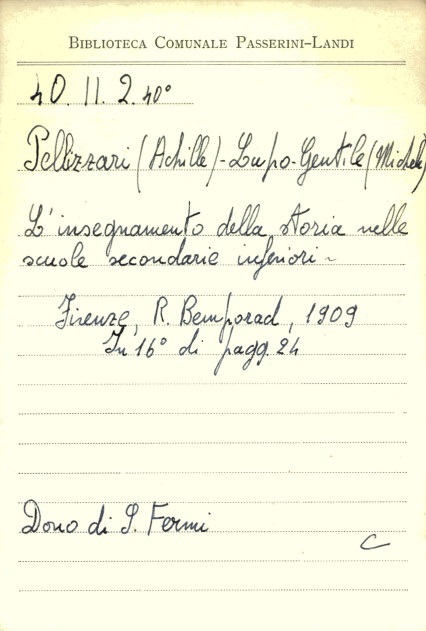 BIBLIOTECA COMUNALE PASSERINI-LANDI
40. 11. 2. 40°
Pellizzari (Achille) - Lupo-Gentile (Michele)
L'insegnamento della storia nelle
scuole secondarie inferiori -
Firenze, R. Bemporad, 1909
In 16° di pagg. 24
Dono di S. Fermi
C